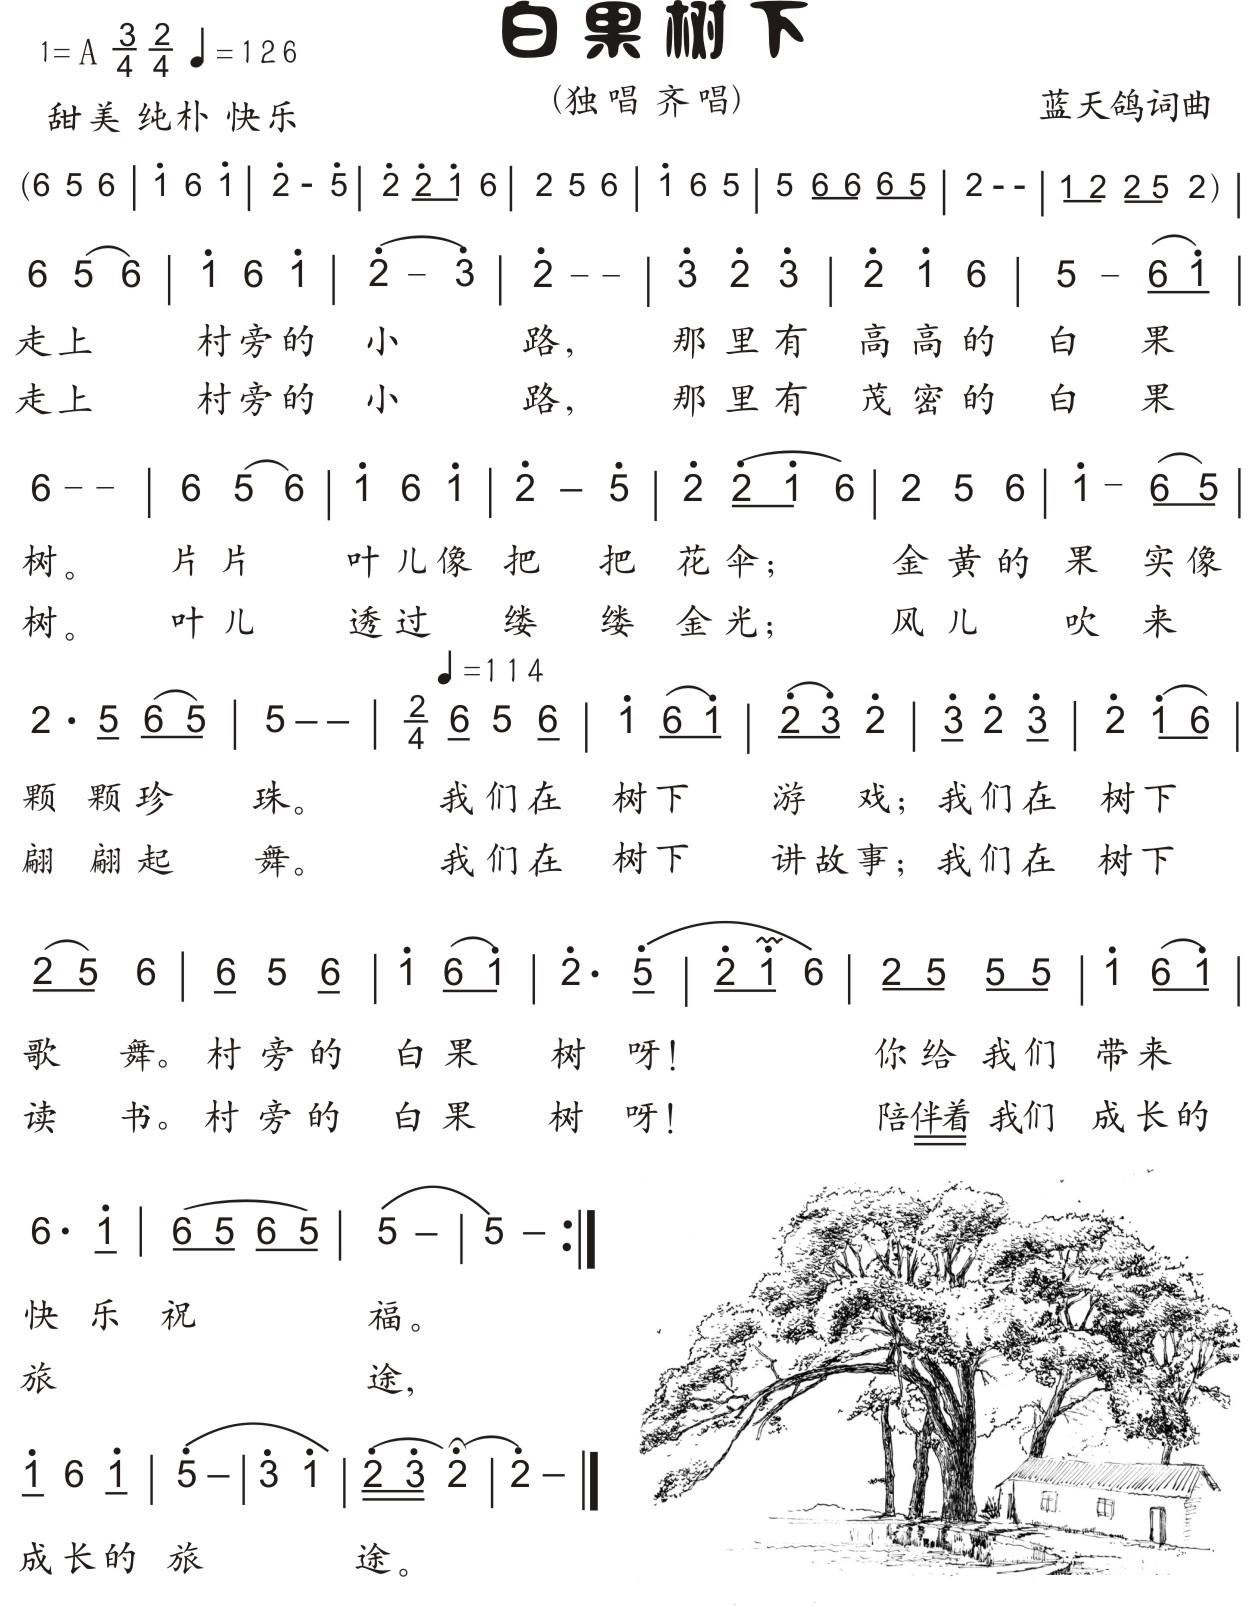 白果树下
1=A 3/4 2/4 ♩=126
(独唱 齐唱)
甜美 纯朴 快乐
蓝天鸽词曲
(6 5 6 | 1̇ 6 1̇ | 2̇ - 5̇ | 2̇ 2̇ 1̇ 6 | 2 5 6 | 1̇ 6 5 | 5 6 6 6 5 | 2 - - | 1 2 2 5 2) |
6 5 6 | 1̇ 6 1̇ | 2̇ - 3̇ | 2̇ - - | 3̇ 2̇ 3̇ | 2̇ 1̇ 6 | 5 - 6 1̇ |
走上 村旁的 小 路, 那里有 高高的 白 果
走上 村旁的 小 路, 那里有 茂密的 白 果
6 - - | 6 5 6 | 1̇ 6 1̇ | 2̇ - 5̇ | 2̇ 2̇ 1̇ 6 | 2 5 6 | 1̇ - 6 5 |
树。 片片 叶儿像 把 把 花伞; 金黄的 果 实像
树。 叶儿 透过 缕 缕 金光; 风儿 吹 来
♩=114
2 · 5 6 5 | 5 - - | 2/4 6 5 6 | 1̇ 6 1̇ | 2̇ 3̇ 2̇ | 3̇ 2̇ 3̇ | 2̇ 1̇ 6 |
颗 颗珍 珠。 我们在 树下 游 戏; 我们在 树下
翩 翩起 舞。 我们在 树下 讲故事; 我们在 树下
2 5 6 | 6 5 6 | 1̇ 6 1̇ | 2̇ · 5̇ | 2̇ 1̇ 6 | 2 5 5 5 | 1̇ 6 1̇ |
歌 舞。 村旁的 白果 树 呀! 你给 我们 带来
读 书。 村旁的 白果 树 呀! 陪伴着 我们 成长的
6 · 1̇ | 6 5 6 5 | 5 - | 5 - :‖
快 乐 祝 福。
旅 途,
1̇ 6 1̇ | 5̇ - | 3̇ 1̇ | 2̇ 3̇ 2̇ | 2̇ - ‖
成长的 旅 途。